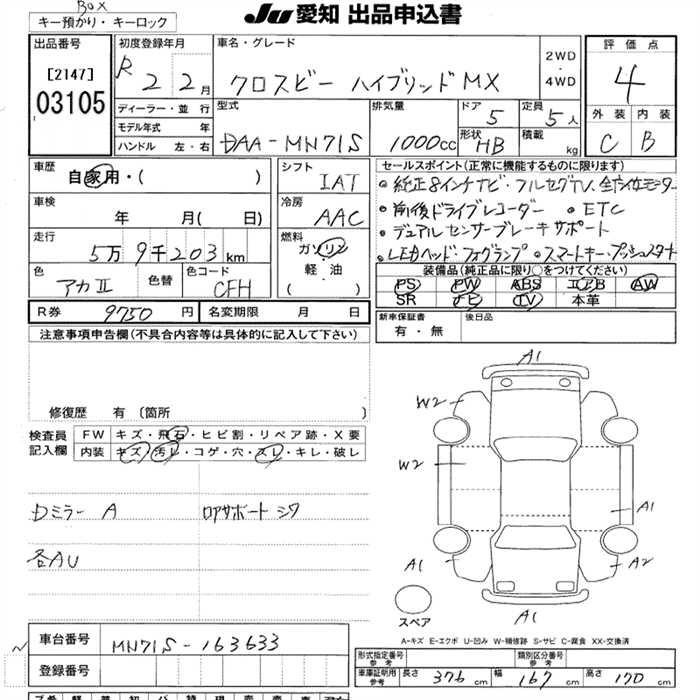 BOX
キー預かり・キーロック
JU愛知 出品申込書
出品番号
[2147]
03105
初度登録年月
R 2 2月
車名・グレード
クロスビー ハイブリッドMX
2WD
・
4WD
評価点
4
外装 内装
C B
ディーラー・並行
モデル年式 年
ハンドル 左・右
型式
DAA-MN71S
排気量
1000cc
ドア
5
定員
5人
形状
HB
積載
kg
車歴
自家用・( )
車検
年 月( 日)
走行
5万9千203km
色
アカII
色替
色コード
CFH
シフト
IAT
冷房
AAC
燃料
ガソリン
・
軽・油
( )
セールスポイント(正常に機能するものに限ります)
・純正8インチナビ・フルセグTV、全方位モニター
・前後ドライブレコーダー ・ETC
・デュアルセンサーブレーキサポート
・LEDヘッド・フォグランプ ・スマートキー・プッシュスタート
装備品(純正品に限り○をつけてください)
PS PW ABS エアB AW
SR ナビ TV 本革
R券 9750円
名変期限 月 日
新車保証書
有・無
後日品
注意事項申告欄(不具合内容等は具体的に記入して下さい)
修復歴 有 〔箇所 〕
検査員
記入欄
FW キズ・飛石・ヒビ割・リペア跡・X要
内装 キズ・汚レ・コゲ・穴・スレ・キレ・破レ
Dミラー A
ロアサポート シワ
各AU
A1
W2
W2
A1
A1
A2
A1
スペア
A-キズ E-エクボ U-凹み W-補修跡 S-サビ C-腐食 XX-交換済
車台番号 MN71S-163633
登録番号
形式指定番号
参考
類別区分番号
参考
車庫証明用
参考
長さ 376cm 幅 167cm 高さ 170cm